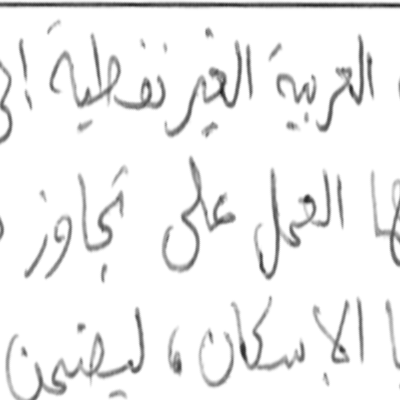 العربية الغير نفطية إلى
العمل على تجاوز
الإسكان، ليضمن